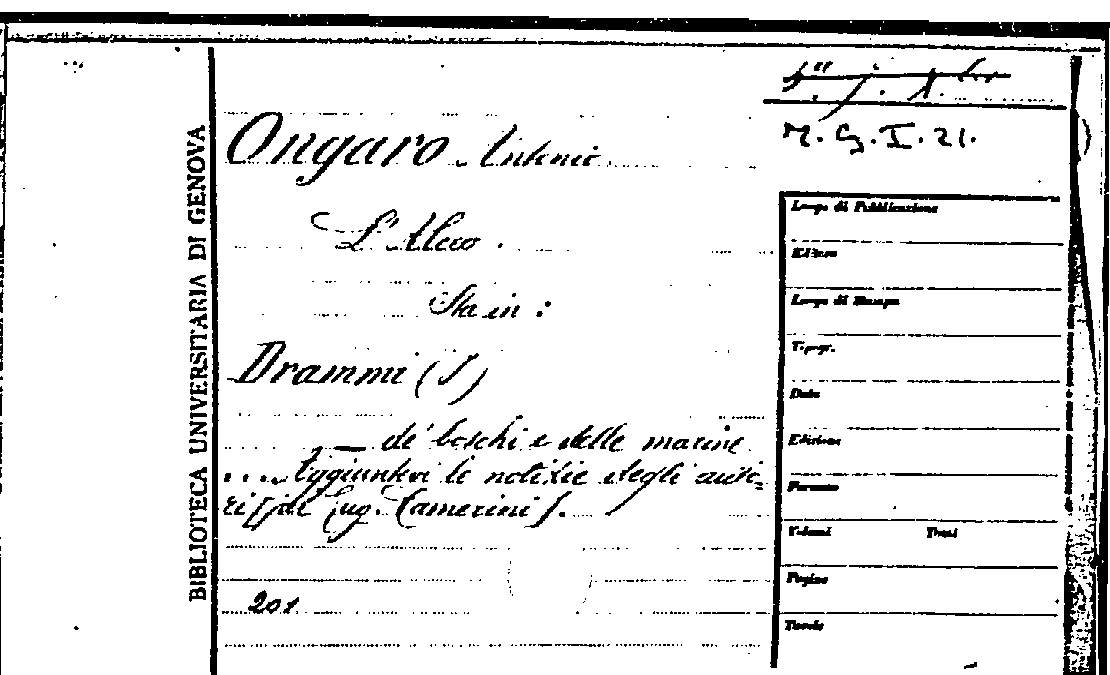 BIBLIOTECA UNIVERSITARIA DI GENOVA
Ongaro Antonio
M. G. I. 21.
L'Alceo.
Sta in:
Drammi (I)
— de' boschi e delle marine
.... Aggiuntevi le notizie degli auto=
ri [da Eug. Camerini].
201
Luogo di Pubblicazione
Editore
Luogo di Stampa
Tipogr.
Data
Edizione
Formato
Volumi Tomi
Pagine
Tavole